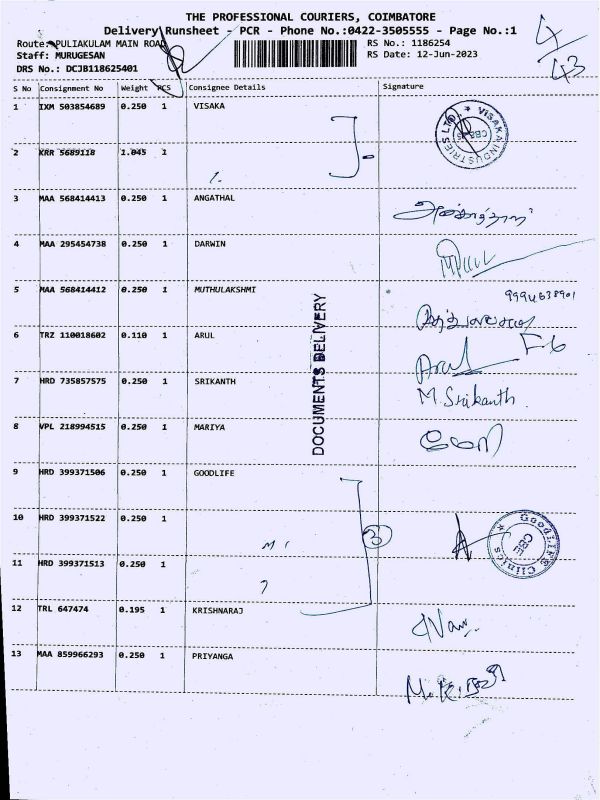 THE PROFESSIONAL COURIERS, COIMBATORE
Delivery Runsheet - PCR - Phone No.:0422-3505555 - Page No.:1
Route: PULIAKULAM MAIN ROAD
Staff: MURUGESAN
DRS No.: DCJB118625401
RS No.: 1186254
RS Date: 12-Jun-2023
4/43
S No Consignment No Weight PCS Consignee Details Signature
1 IXM 503854689 0.250 1 VISAKA
VISAKA INDUSTRIES LTD. ★ CBE
2 KRR 5689118 1.045 1
3 MAA 568414413 0.250 1 ANGATHAL
4 MAA 295454738 0.250 1 DARWIN
5 MAA 568414412 0.250 1 MUTHULAKSHMI
9994638901
6 TRZ 110018602 0.110 1 ARUL
Arul
7 HRD 735857575 0.250 1 SRIKANTH
M. Srikanth
8 VPL 218994515 0.250 1 MARIYA
DOCUMENTS DELIVERY
9 HRD 399371506 0.250 1 GOODLIFE
10 HRD 399371522 0.250 1
3
Goodlife Clinics ★ CBE
11 HRD 399371513 0.250 1
12 TRL 647474 0.195 1 KRISHNARAJ
13 MAA 859966293 0.250 1 PRIYANGA